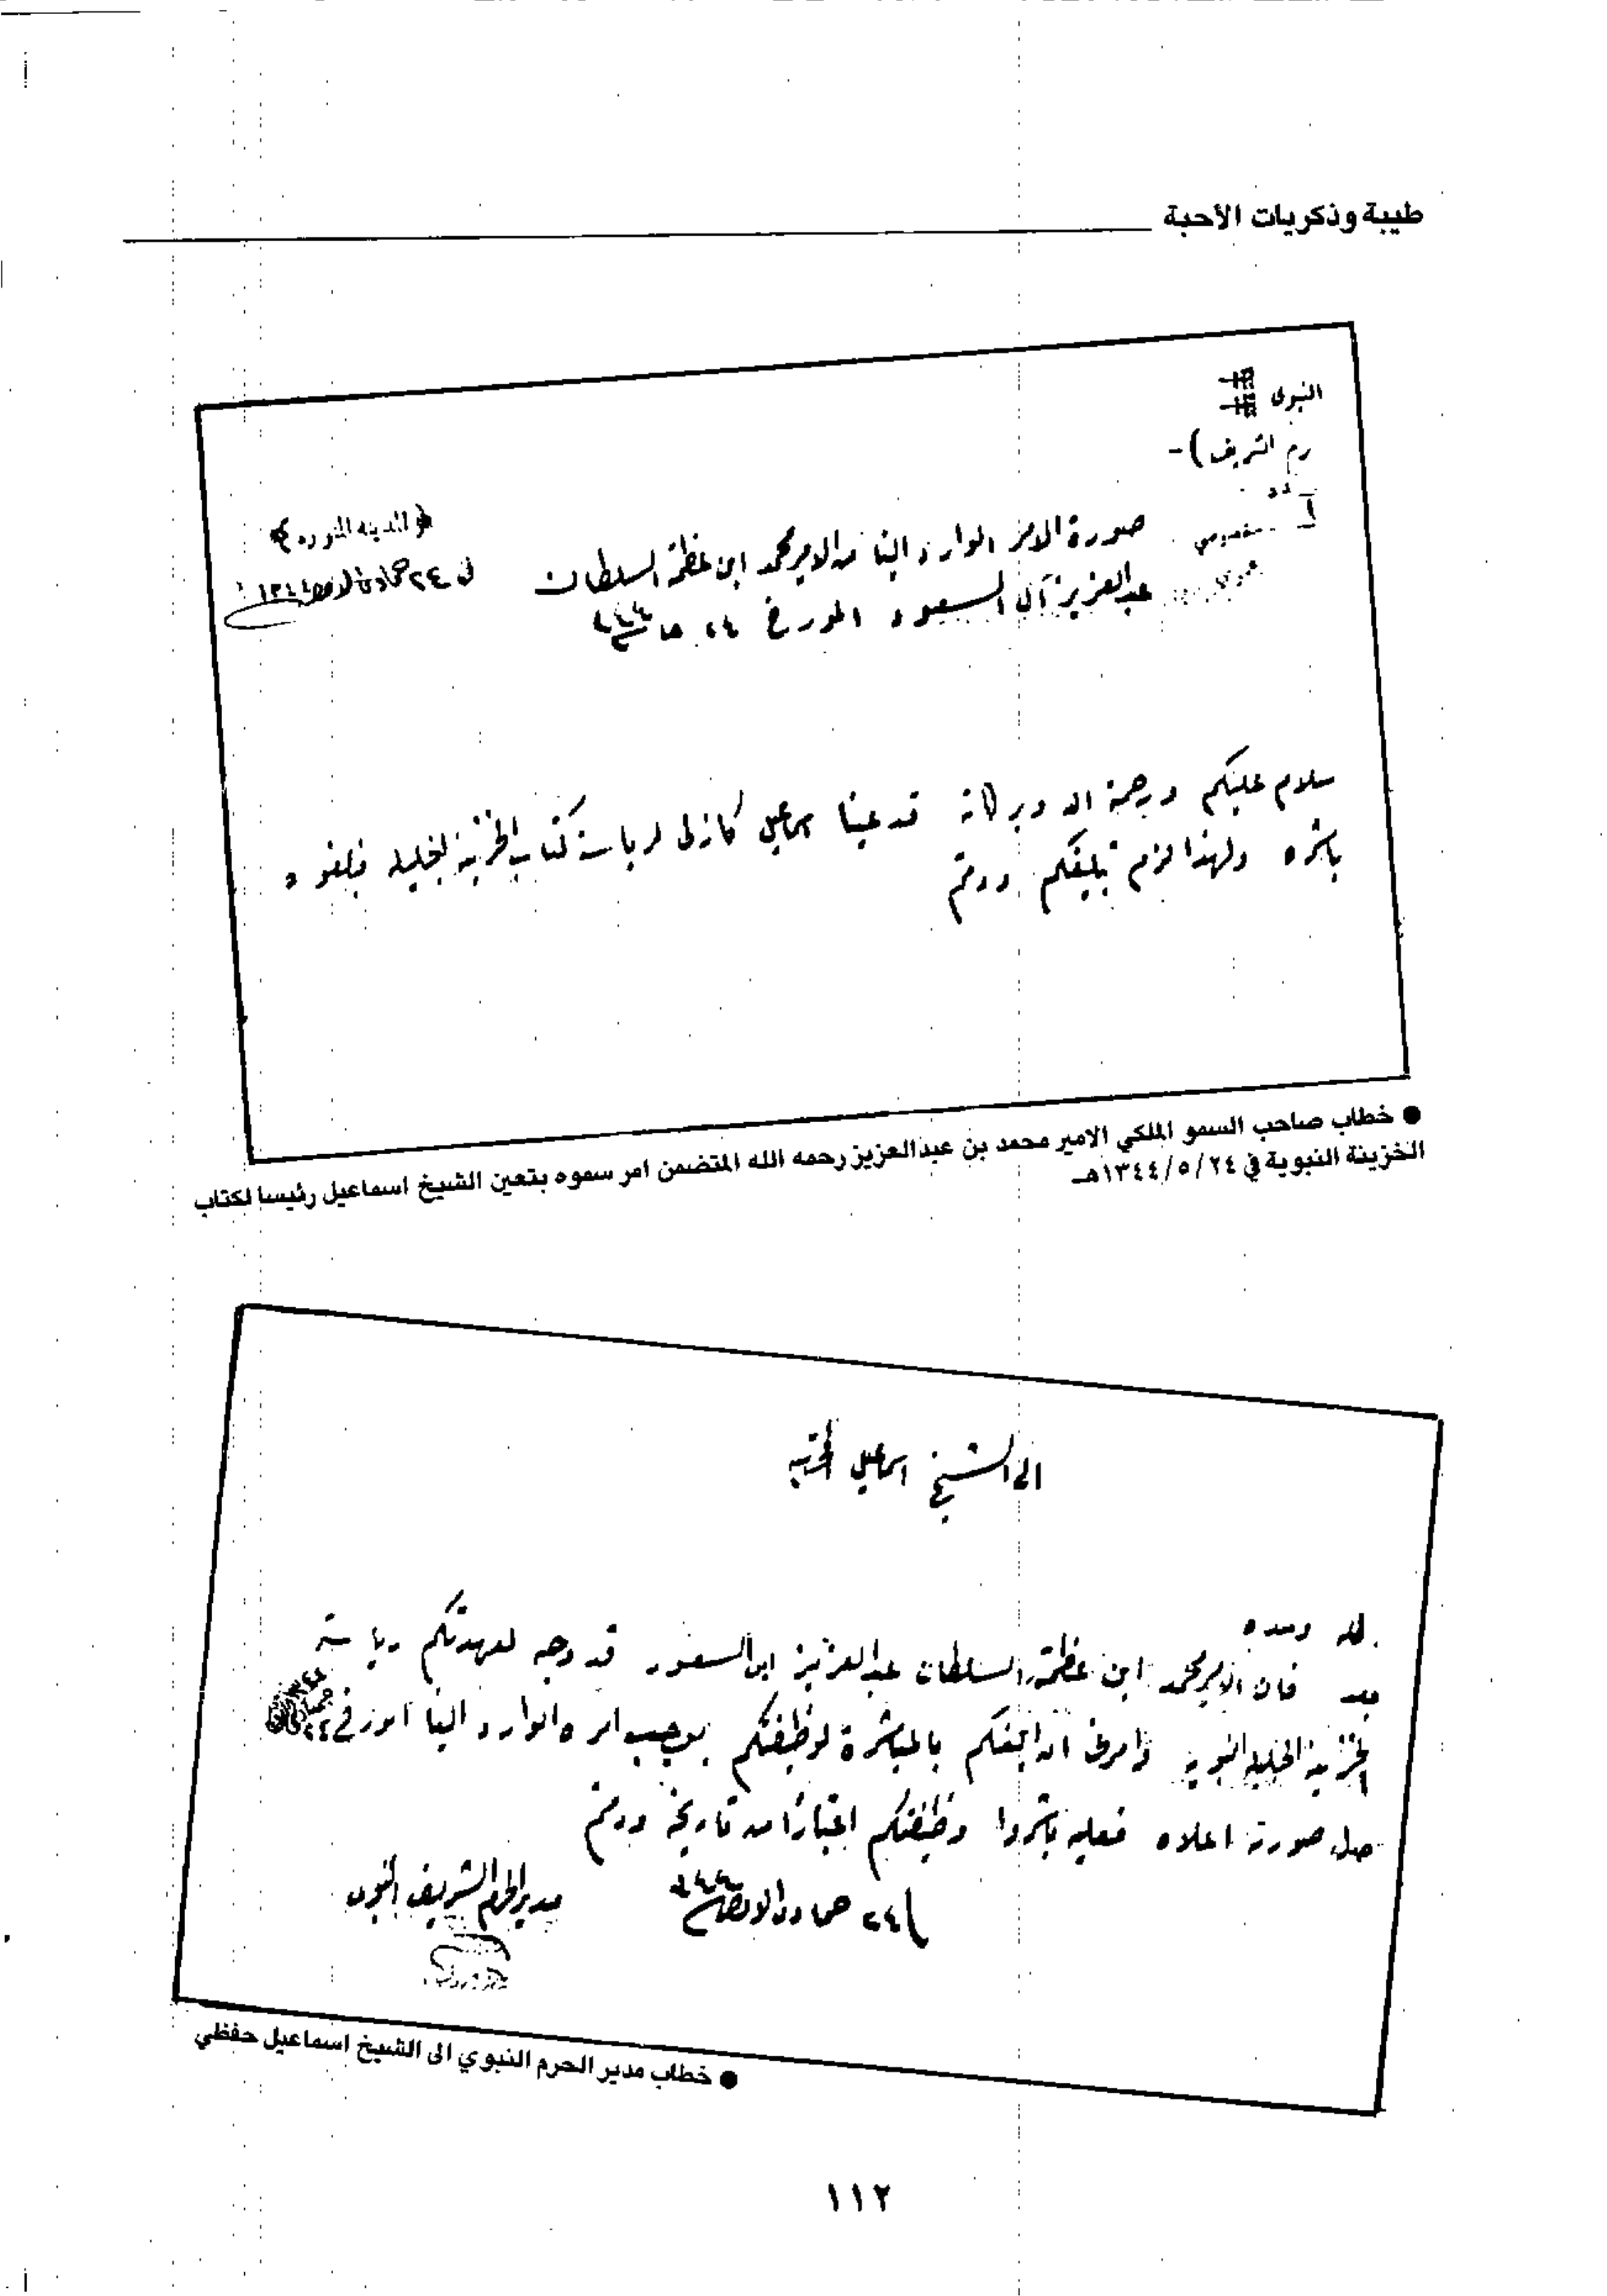 طيبة وذكريات الأحبة
النبوى
رم الشريف) -
صورة الامر الوارد الينا من الامير محمد ابن عظمة السلطان
عبدالعزيز آل السعود المورخ ٢٤ جا سنة ٤٤
﴿المدينه المنوره﴾
فى ٢٤ جمادى الاول ١٣٤٤
سلام عليكم ورحمة الله وبركاته قد عينا اسماعيل لرياسة كتاب الخزينة الجليلة فبلغوه
باشره ولهذا لزم تبليغكم ودمتم
● خطاب صاحب السمو الملكي الامير محمد بن عبدالعزيز رحمه الله المتضمن امر سموه بتعين الشيخ اسماعيل رئيسا لكتاب
الخزينة النبوية في ١٣٤٤/٥/٢٤هـ
الى الشيخ اسماعيل
لله وحده
بعد فان الامير محمد ابن عظمة السلطان عبدالعزيز ابن السعود قد وجه لعهدتكم رياسة
الخزينة الجليلة النبوية وامرنى ان ابلغكم بالمباشرة لوظيفتكم بموجب امره الوارد الينا فى ٢٤
صورته اعلاه فعليه باشروا وظيفتكم اعتبارًا من تاريخه ودمتم
٢٤ جمادى الاول سنة ٤٤
مدير الحرم الشريف النبوى
● خطاب مدير الحرم النبوي الى الشيخ اسماعيل حفظي
١١٢